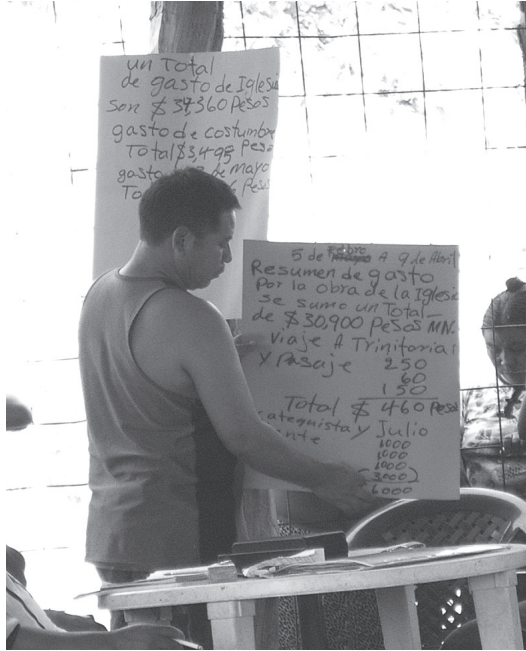 un Total
de gasto de Iglesia
son $ 37,360 Pesos
gasto de costumbre
Total $3,495 Peso
gasto de mayo
To Pesos
5 de febro A 9 de Abril
Resumen de gasto
Por la obra de la Iglesia
se sumo un Total
de $30,900 Pesos MN.
Viaje A Trinitaria
y Pasaje 250
60
150
Total $ 460 Pesos
ateguista y Julio
ente 1000
1000
1000
(3000)
6000